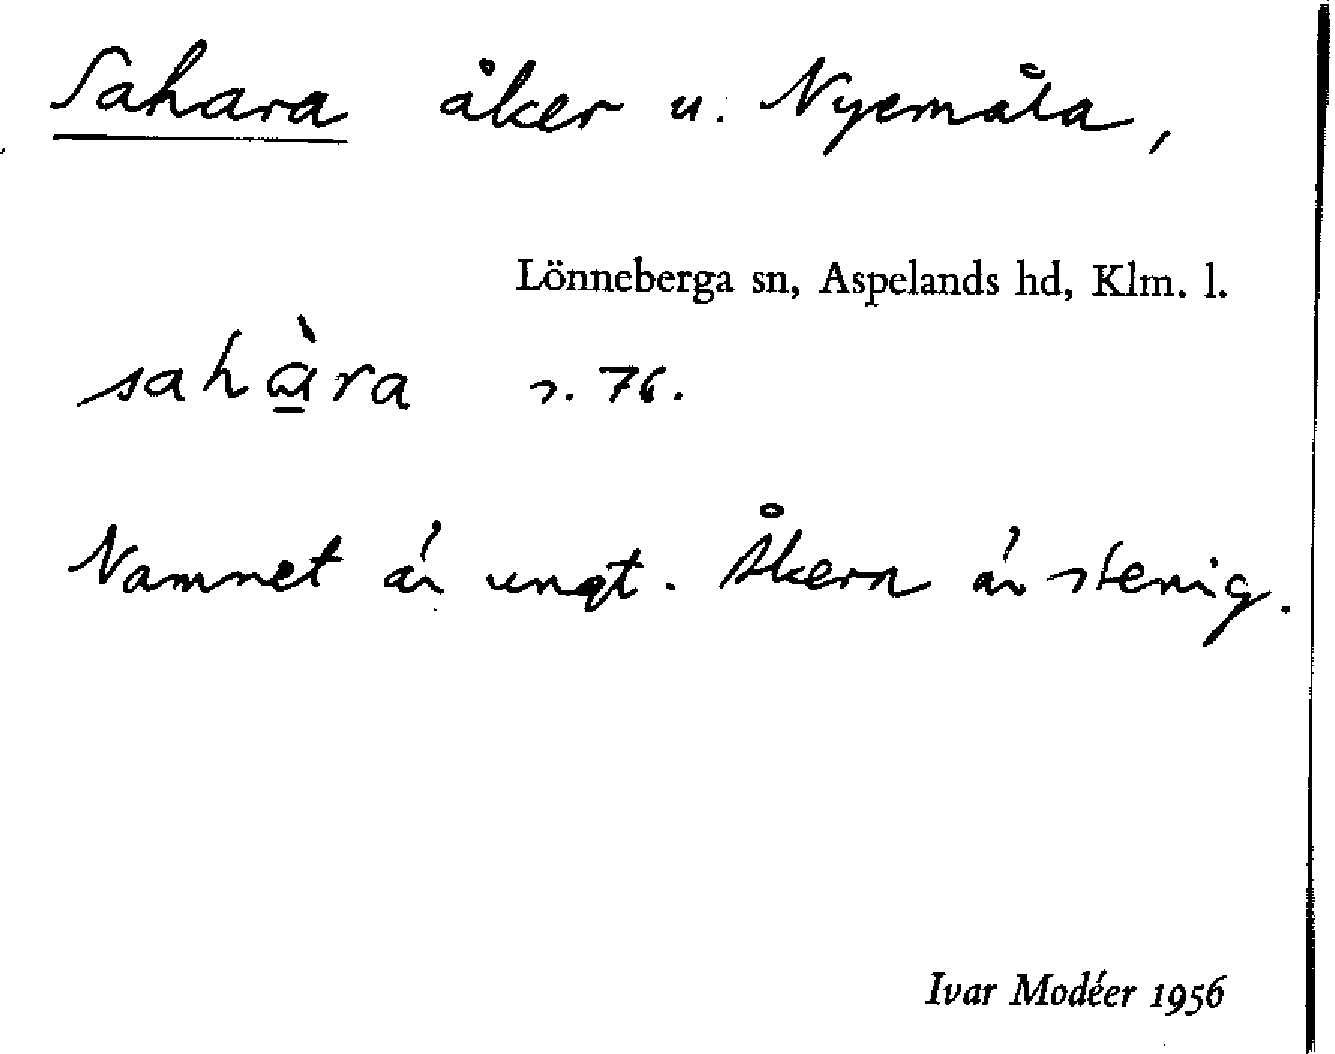 Sahara åker u. Nyemåla,
Lönneberga sn, Aspelands hd, Klm. l.
sahɑ̱̀ra s. 76.
Namnet är ungt. Åkern är stenig.
Ivar Modéer 1956